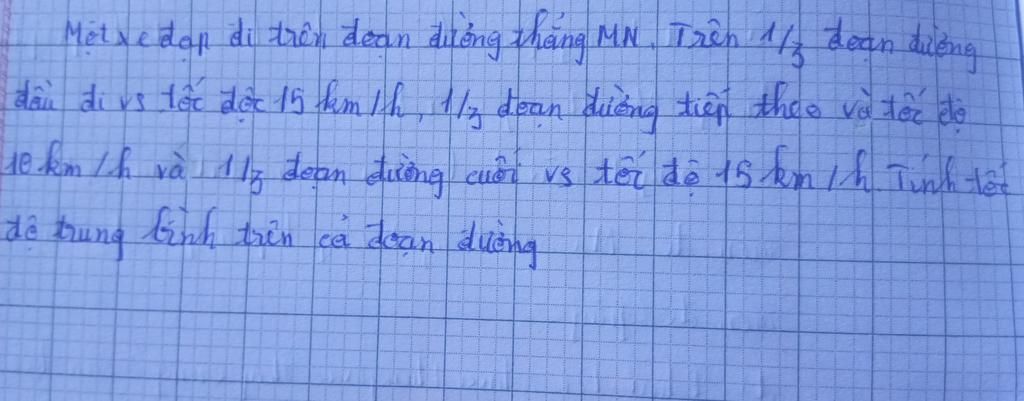 Một xe đạp đi trên đoạn đường thẳng MN. Trên 1/3 đoạn đường
đầu đi vs tốc độc 15 km/h, 1/3 đoạn đường tiếp theo và tốc độ
10 km/h và 1/3 đoạn đường cuối vs tốc độ 15 km/h Tính tốc
độ trung bình trên cả đoạn đường